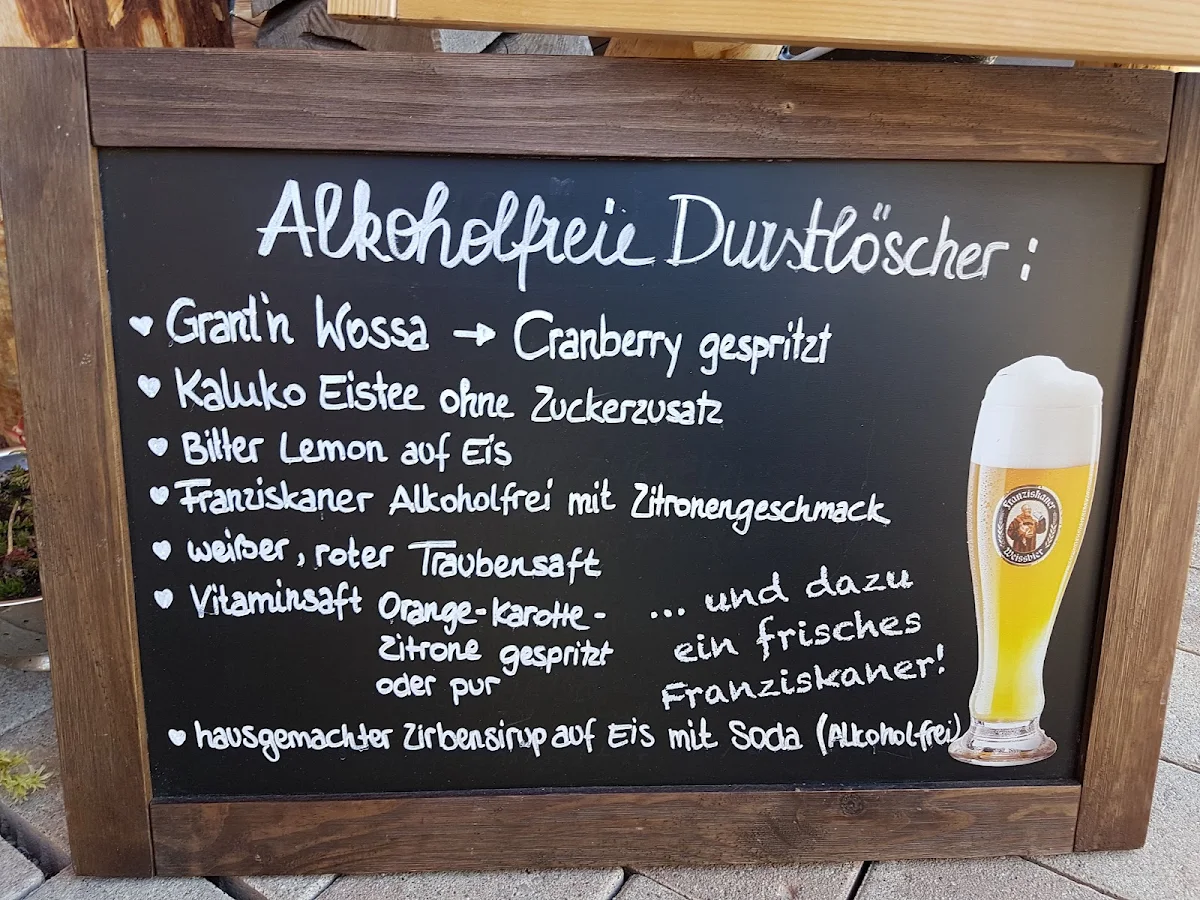 Alkoholfreie Durstlöscher:
Grant'n Wossa → Cranberry gespritzt
Kaluko Eistee ohne Zuckerzusatz
Bitter Lemon auf Eis
Franziskaner Alkoholfrei mit Zitronengeschmack
weißer, roter Traubensaft
Vitaminsaft Orange-Karotte-
Zitrone gespritzt
oder pur
... und dazu
ein frisches
Franziskaner!
hausgemachter Zirbensirup auf Eis mit Soda (Alkoholfrei)
Franziskaner
Weissbier